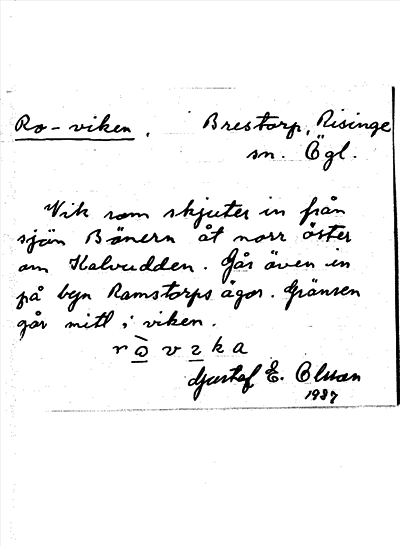 Ro-viken. Brestorp, Risinge
sn. Ögl.
Vik som skjuter in från
sjön Bönern åt norr öster
om Kalvudden. Går även in
på byn Ramstorps ägor. Gränsen
går mitt i viken.
Gustaf E. Olsson
1937